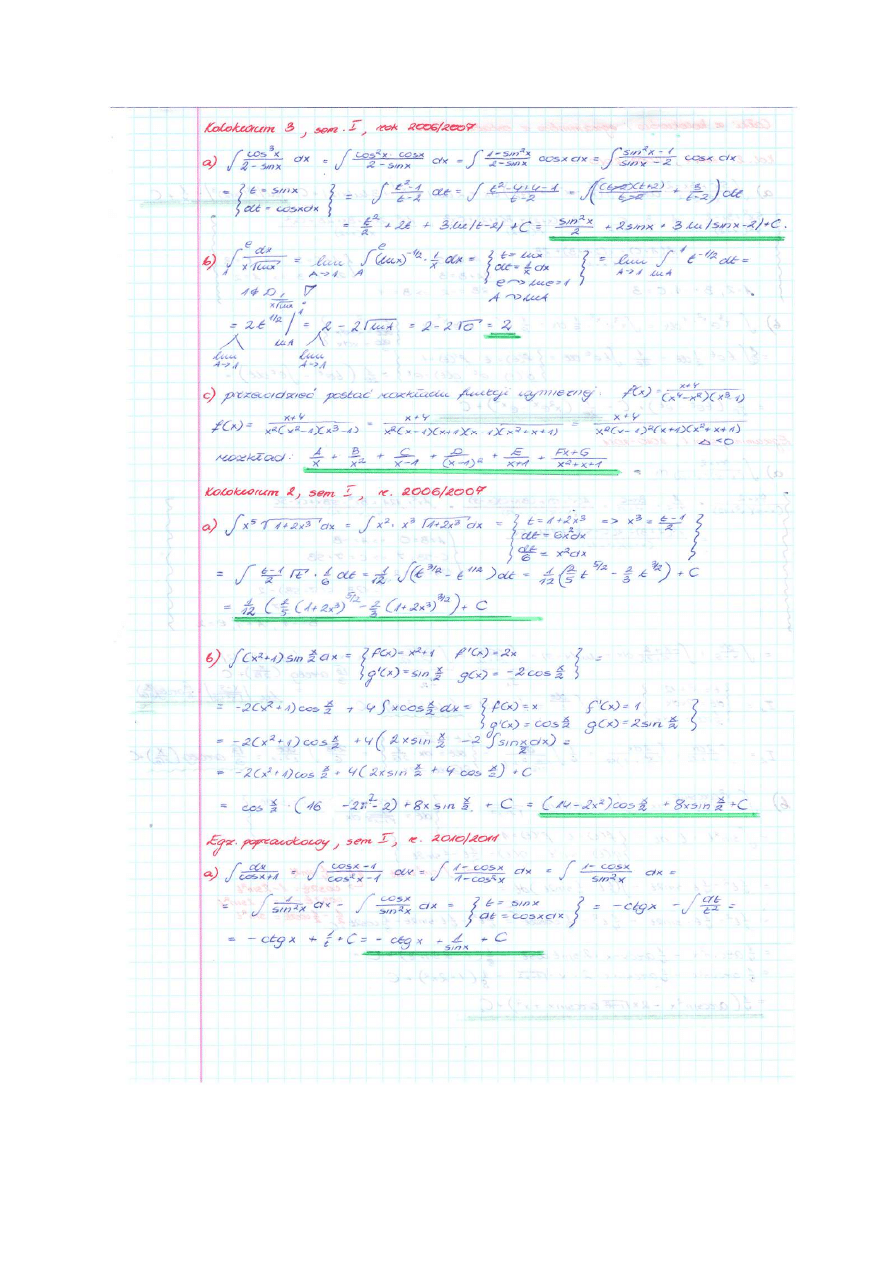 Kolokwium 3, sem. I, rok 2006/2007
a) ∫ cos³x / (2-sinx) dx = ∫ cos²x · cosx / (2-sinx) dx = ∫ (1-sin²x)/(2-sinx) cosx dx = ∫ (sin²x-1)/(sinx-2) cosx dx
= { t = sinx ; dt = cosxdx } = ∫ (t²-1)/(t-2) dt = ∫ (t²-4+4-1)/(t-2) = ∫( (t-2)(t+2)/(t-2) + 3/(t-2) ) dt
= t²/2 + 2t + 3·ln|t-2| + C = sin²x/2 + 2sinx + 3 ln|sinx-2| + C.
b) ∫₁ᵉ dx / (x√lnx) = lim A→1 ∫_A^e (lnx)^(-1/2) · 1/x dx = { t = lnx ; dt = 1/x dx ; e ~> lne = 1 ; A ~> lnA } = lim A→1 ∫_lnA^1 t^(-1/2) dt =
1∉D 1/(x√lnx) !
= 2t^(1/2) |_lnA^1 = 2 - 2√lnA = 2-2√0 = 2
lim A→1 lim A→1
c) przewidzieć postać rozkładu funkcji wymiernej. f(x) = (x+4) / ((x⁴-x²)(x³-1))
f(x) = (x+4) / (x²(x²-1)(x³-1)) = (x+4) / (x²(x-1)(x+1)(x-1)(x²+x+1)) = (x+4) / (x²(x-1)²(x+1)(x²+x+1))
Δ<0
rozkład: A/x + B/x² + C/(x-1) + D/(x-1)² + E/(x+1) + (Fx+G)/(x²+x+1)
Kolokwium 2, sem I, r. 2006/2007
a) ∫ x⁵ √(1+2x³) dx = ∫ x² · x³ √(1+2x³) dx = { t = 1+2x³ => x³ = (t-1)/2 ; dt = 6x²dx ; dt/6 = x²dx }
= ∫ (t-1)/2 √t · 1/6 dt = 1/12 ∫ (t^(3/2) - t^(1/2)) dt = 1/12 (2/5 t^(5/2) - 2/3 t^(3/2)) + C
= 1/12 (2/5 (1+2x³)^(5/2) - 2/3 (1+2x³)^(3/2)) + C
b) ∫ (x²+1) sin x/2 dx = { f(x) = x²+1 f'(x) = 2x ; g'(x) = sin x/2 g(x) = -2cos x/2 } =
= -2(x²+1)cos x/2 + 4∫ xcos x/2 dx = { f(x) = x f'(x) = 1 ; g'(x) = cos x/2 g(x) = 2sin x/2 }
= -2(x²+1)cos x/2 + 4( 2xsin x/2 - 2∫ sin x/2 dx) =
= -2(x²+1)cos x/2 + 4(2xsin x/2 + 4 cos x/2) + C
= cos x/2 · (16 -2x²-2) + 8x sin x/2 + C = (14-2x²)cos x/2 + 8xsin x/2 + C
Egz. poprawkowy, sem I, r. 2010/2011
a) ∫ dx/(cosx+1) = ∫ (cosx-1)/(cos²x-1) dx = ∫ (1-cosx)/(1-cos²x) dx = ∫ (1-cosx)/sin²x dx =
= ∫ 1/sin²x dx - ∫ cosx/sin²x dx = { t = sinx ; dt = cosxdx } = -ctgx - ∫ dt/t² =
= -ctg x + 1/t + C = - ctg x + 1/sinx + C